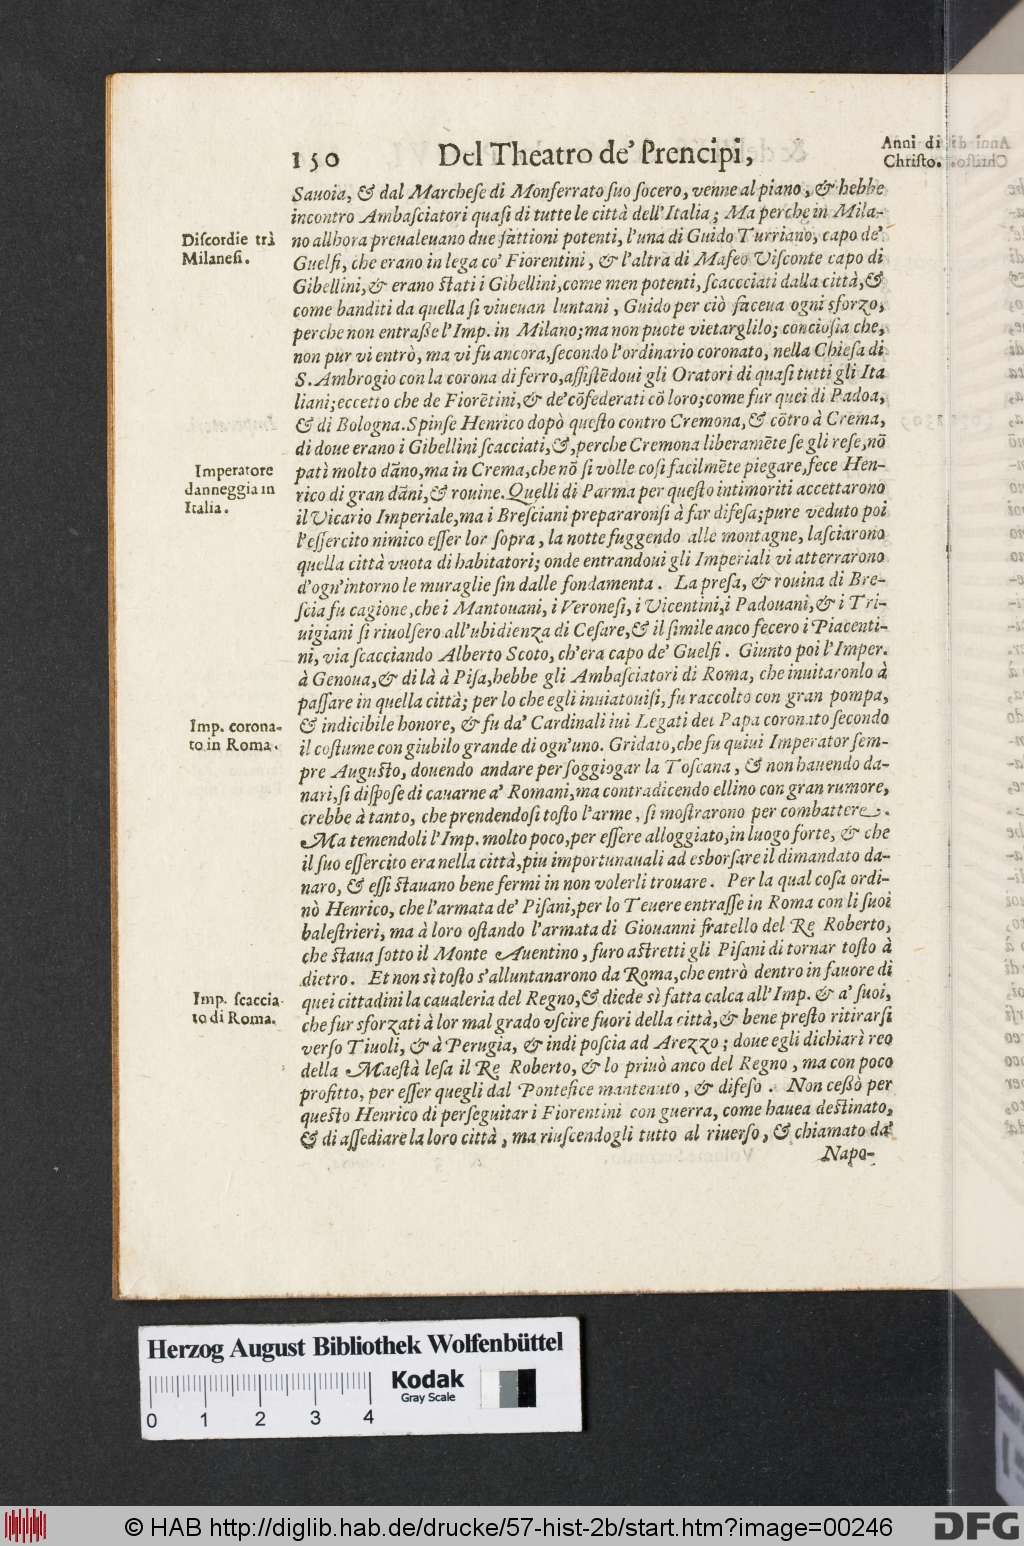 150 Del Theatro de' Prencipi,
Anni di
Christo.
Sauoia, & dal Marchese di Monferrato suo socero, venne al piano, & hebbe
incontro Ambasciatori quasi di tutte le città dell'Italia; Ma perche in Mila-
Discordie trà
Milanesi.
no allhora preualeuano due fattioni potenti, l'una di Guido Turriano, capo de'
Guelfi, che erano in lega co' Fiorentini, & l'altra di Mafeo Visconte capo di
Gibellini, & erano stati i Gibellini, come men potenti, scaccciati dalla città, &
come banditi da quella si viueuan luntani, Guido per ciò faceua ogni sforzo,
perche non entrasse l'Imp. in Milano; ma non puote vietarglilo; conciosia che,
non pur vi entrò, ma vi fu ancora, secondo l'ordinario coronato, nella Chiesa di
S. Ambrogio con la corona di ferro, assistẽdoui gli Oratori di quasi tutti gli Ita
liani; eccetto che de Fiorẽtini, & de' cõfederati cõ loro; come fur quei di Padoa,
& di Bologna. Spinse Henrico dopò questo contro Cremona, & cõtro à Crema,
di doue erano i Gibellini scacciati, &, perche Cremona liberamẽte se gli rese, nõ
Imperatore
danneggia in
Italia.
patì molto dãno, ma in Crema, che nõ si volle cosi facilmẽte piegare, fece Hen-
rico di gran dãni, & rouine. Quelli di Parma per questo intimoriti accettarono
il Vicario Imperiale, ma i Bresciani prepararonsi à far difesa; pure veduto poi
l'essercito nimico esser lor sopra, la notte fuggendo alle montagne, lasciarono
quella città vuota di habitatori; onde entrandoui gli Imperiali vi atterrarono
d'ogn'intorno le muraglie sin dalle fondamenta. La presa, & rouina di Bre-
scia fu cagione, che i Mantouani, i Veronesi, i Vicentini, i Padouani, & i Tri-
uigiani si riuolsero all'ubidienza di Cesare, & il simile anco fecero i Piacenti-
ni, via scacciando Alberto Scoto, ch'era capo de' Guelfi. Giunto poi l'Imper.
à Genoua, & di là à Pisa, hebbe gli Ambasciatori di Roma, che inuitaronlo à
passare in quella città; per lo che egli inuiatouisi, fu raccolto con gran pompa,
Imp. corona-
to in Roma.
& indicibile honore, & fu da' Cardinali iui Legati del Papa coronato secondo
il costume con giubilo grande di ogn'uno. Gridato, che fu quiui Imperator sem-
pre Augusto, douendo andare per soggiogar la Toscana, & non hauendo da-
nari, si dispose di cauarne a' Romani, ma contradicendo ellino con gran rumore,
crebbe à tanto, che prendendosi tosto l'arme, si mostrarono per combattere.
Ma temendoli l'Imp. molto poco, per essere alloggiato, in luogo forte, & che
il suo essercito era nella città, piu importunauali ad esborsare il dimandato da-
naro, & essi stauano bene fermi in non volerli trouare. Per la qual cosa ordi-
nò Henrico, che l'armata de' Pisani, per lo Teuere entrasse in Roma con li suoi
balestrieri, ma à loro ostando l'armata di Giouanni fratello del Re Roberto,
che staua sotto il Monte Auentino, furo astretti gli Pisani di tornar tosto à
dietro. Et non sì tosto s'alluntanarono da Roma, che entrò dentro in fauore di
Imp. scaccia-
to di Roma.
quei cittadini la caualeria del Regno, & diede sì fatta calca all'Imp. & a' suoi,
che fur sforzati à lor mal grado vscire fuori della città, & bene presto ritirarsi
verso Tiuoli, & à Perugia, & indi poscia ad Arezzo; doue egli dichiarì reo
della Maestà lesa il Re Roberto, & lo priuò anco del Regno, ma con poco
profitto, per esser quegli dal Pontefice mantenuto, & difeso. Non cessò per
questo Henrico di perseguitar i Fiorentini con guerra, come hauea destinato,
& di assediare la loro città, ma riuscendogli tutto al riuerso, & chiamato da'
Napo-
Herzog August Bibliothek Wolfenbüttel
Kodak
Gray Scale
0 1 2 3 4
© HAB http://diglib.hab.de/drucke/57-hist-2b/start.htm?image=00246
DFG